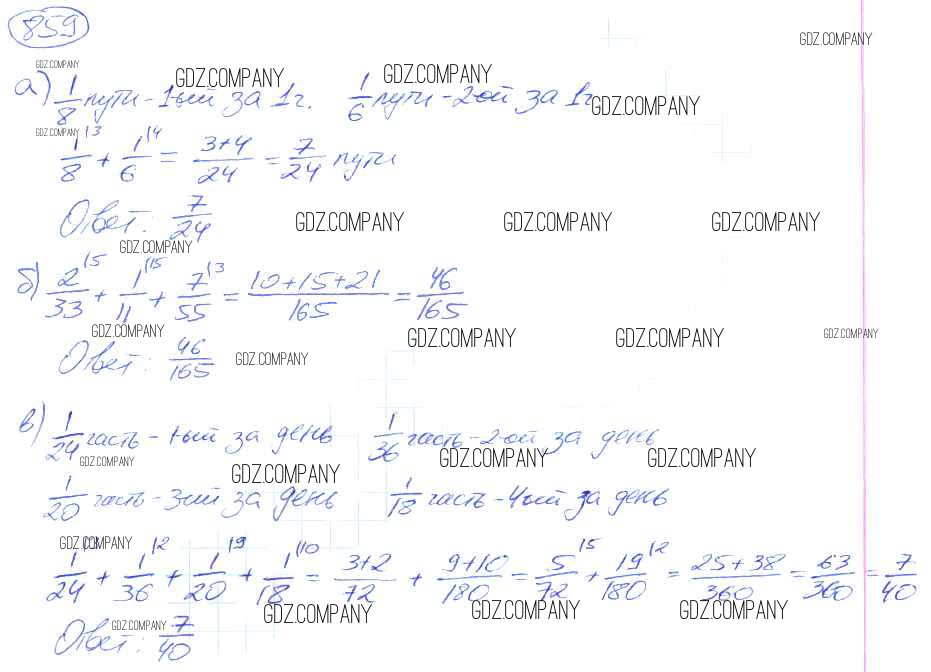 859
GDZ.COMPANY
GDZ.COMPANY GDZ.COMPANY GDZ.COMPANY
а) 1/8 пути - 1-ый за 1 г. 1/6 пути - 2-ой за 1 г
GDZ.COMPANY
GDZ.COMPANY
1/8 \3 + 1/6 \4 = 3+4/24 = 7/24 пути
Ответ: 7/24
GDZ.COMPANY GDZ.COMPANY GDZ.COMPANY
GDZ.COMPANY
б) 2/33 \5 + 1/11 \15 + 7/55 \3 = 10+15+21/165 = 46/165
GDZ.COMPANY GDZ.COMPANY GDZ.COMPANY GDZ.COMPANY
Ответ: 46/165
GDZ.COMPANY
в) 1/24 часть - 1-ый за день 1/36 часть - 2-ой за день
GDZ.COMPANY GDZ.COMPANY GDZ.COMPANY
GDZ.COMPANY
1/20 часть - 3-ий за день 1/18 часть - 4-ый за день
GDZ.COMPANY
1/24 + 1/36 \2 + 1/20 \9 + 1/18 \10 = 3+2/72 + 9+10/180 = 5/72 \5 + 19/180 \2 = 25+38/360 = 63/360 = 7/40
GDZ.COMPANY GDZ.COMPANY GDZ.COMPANY
GDZ.COMPANY
Ответ: 7/40